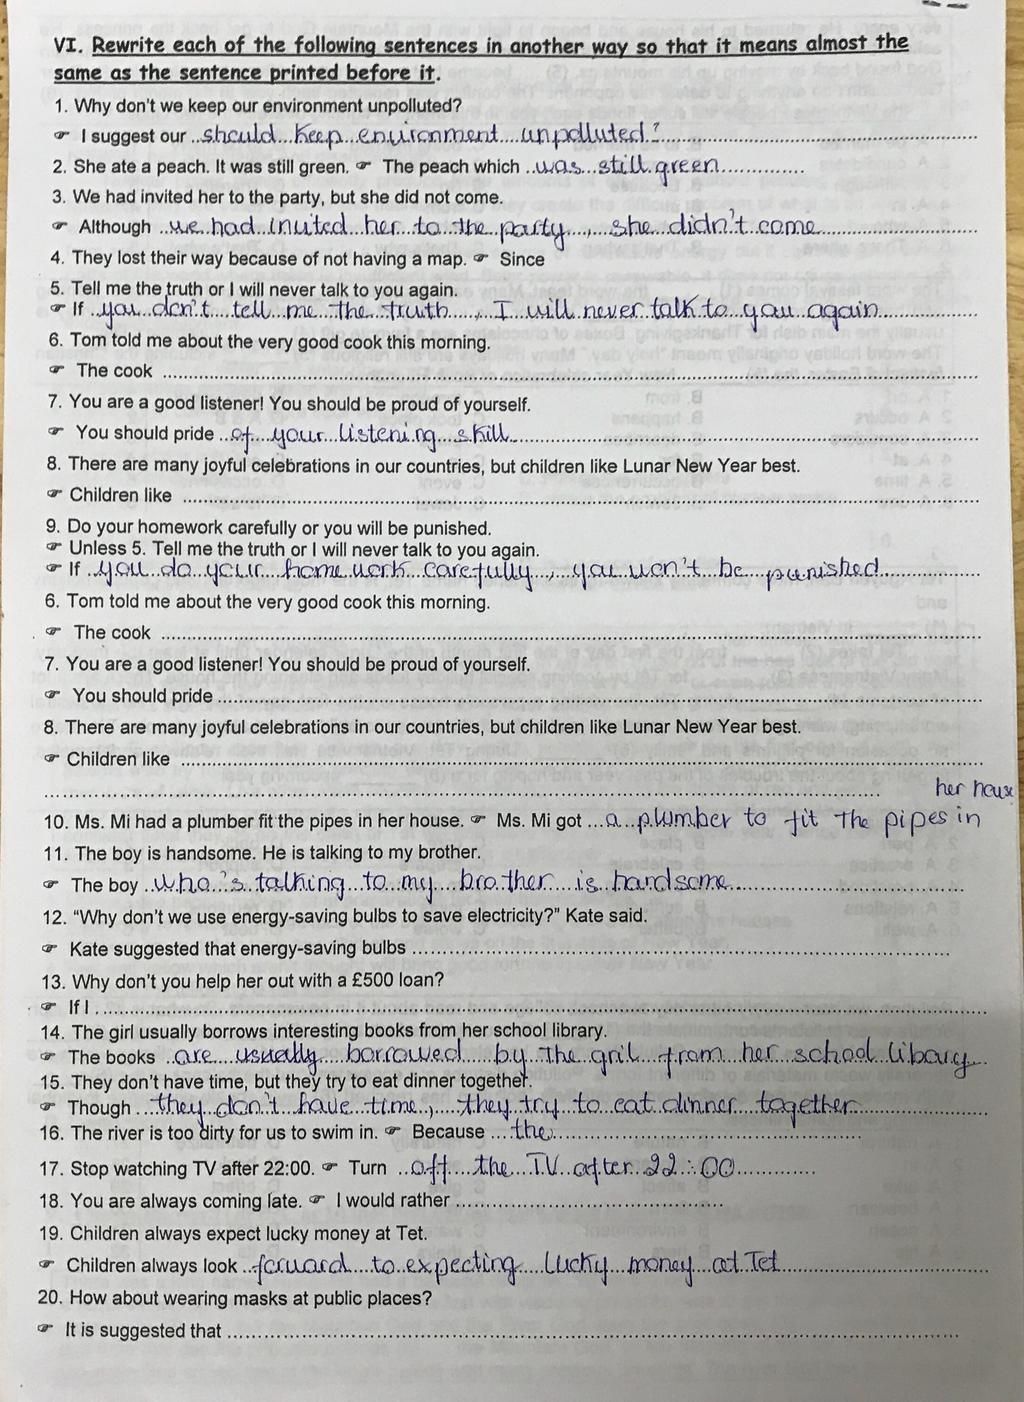 VI. Rewrite each of the following sentences in another way so that it means almost the
same as the sentence printed before it.
1. Why don't we keep our environment unpolluted?
☞ I suggest our ..should...keep...environment....unpolluted?
2. She ate a peach. It was still green. ☞ The peach which ..was...still.green
3. We had invited her to the party, but she did not come.
☞ Although ..we..had..invited..her..to..the..party..,..she..didn't..come
4. They lost their way because of not having a map. ☞ Since
5. Tell me the truth or I will never talk to you again.
☞ If ..you..don't...tell..me..the..truth....,..I..will.never..talk.to..you..again
6. Tom told me about the very good cook this morning.
☞ The cook ..........
7. You are a good listener! You should be proud of yourself.
☞ You should pride ..of...your..listening..skill
8. There are many joyful celebrations in our countries, but children like Lunar New Year best.
☞ Children like ..........
9. Do your homework carefully or you will be punished.
☞ Unless 5. Tell me the truth or I will never talk to you again.
☞ If ..you..do..your...home.work..carefully...,..you..won't..be..punished
6. Tom told me about the very good cook this morning.
☞ The cook ..........
7. You are a good listener! You should be proud of yourself.
☞ You should pride ..........
8. There are many joyful celebrations in our countries, but children like Lunar New Year best.
☞ Children like ..........
her house
10. Ms. Mi had a plumber fit the pipes in her house. ☞ Ms. Mi got ...a..plumber to fit the pipes in
11. The boy is handsome. He is talking to my brother.
☞ The boy ..who..'s..talking...to..my...brother...is..handsome
12. “Why don't we use energy-saving bulbs to save electricity?” Kate said.
☞ Kate suggested that energy-saving bulbs ..........
13. Why don't you help her out with a £500 loan?
☞ If I ..........
14. The girl usually borrows interesting books from her school library.
☞ The books ..are...usually...borrowed....by..the..gril..from..her..school..libary
15. They don't have time, but they try to eat dinner together.
☞ Though ...they..don't..have..time.,...they..try..to..eat.dinner...together
16. The river is too dirty for us to swim in. ☞ Because ....the
17. Stop watching TV after 22:00. ☞ Turn ..off...the...TV..after..22.:.00
18. You are always coming late. ☞ I would rather ..........
19. Children always expect lucky money at Tet.
☞ Children always look ..forward...to..expecting...lucky...money..at.Tet
20. How about wearing masks at public places?
☞ It is suggested that ..........